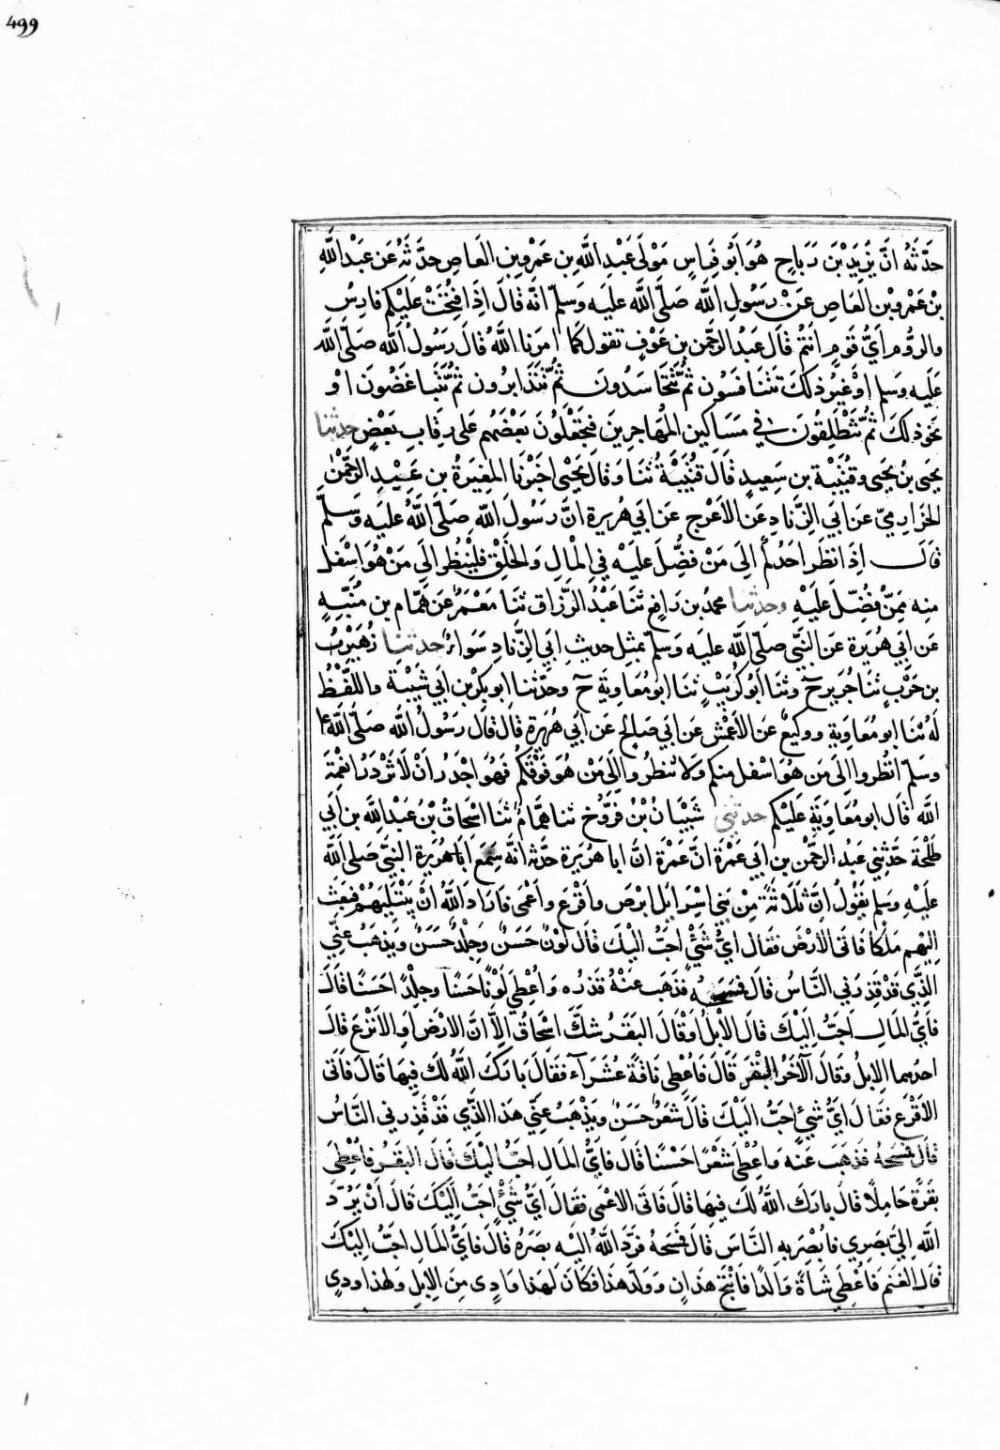 499
حَدَّثَهُ اَنَّ يَزِيدَ بْنَ رَبَاحٍ هُوَ اَبُو فِرَاسٍ مَوْلَى عَبْدِ اللَّهِ بن عَمْرِو بنِ العَاصِ حَدَّثَهُ عَن عَبْدِ اللَّهِ
بْن عَمْرِو بْنِ العَاصِ عَنْ رَسُولِ اللَّه صَلَّى اللَّه عَلَيه وَسَلم انَّه قَالَ اِذَا فُتِحَتْ عَلَيْكُم فَارِسُ
والرُّوْم اَيُّ قَومٍ اَنتُم قَالَ عَبدُ الرَّحمن بن عَوْفٍ نَقُول كَمَا اَمَرَنا اللَّهُ قَالَ رَسُولُ اللَّه صَلَّى اللَّه
عَلَيه وَسَلم اَوْ غَيرُ ذلكَ تَتَنافَسُون ثُمَّ تَتَحَاسَدُونَ ثُمَّ تَتَدَابَرُون ثُمَّ تَتَبَاغَضُونَ اَوْ
نَحوَ ذلكَ ثُمَّ تَنْطَلِقُونَ في مَسَاكين المُهَاجِرينَ فَتَجْعَلُونَ بَعْضَهُم عَلَى رِقَابِ بَعْضٍ حدثنا
يحيى بنُ يَحيَى وقُتَيْبَة بن سَعِيدٍ قَالَ قُتَيْبَةُ ثَنَا وَقَالَ يَحْيَى اخبَرْنَا المُغِيرَةُ بن عَبْدِ الرَّحْمَنِ
الحَزَامِيّ عَن اَبِي الزِّنَادِ عَنِ الاَعْرَج عَن اَبِي هُرَيرة انَّ رَسُولَ اللَّه صَلَّى اللَّهُ عَلَيه وَسَلَّم
قَالَ اِذَا نَظَرَ اَحَدُكُمْ اِلَى مَنْ فُضِّلَ عَلَيْهِ فِي الْمَالِ وَالخَلْقِ فَليَنْظُر اِلَى مَنْ هُوَ اَسْفَل
مِنه مِمَّن فُضِّلَ عَلَيْه وحدثنا محمد بن رَافِعٍ ثنا عَبْدُ الرَّزَّاق ثَنا مَعْمَرٌ عَن هَمَّام بن مُنَبِّهٍ
عَن اَبِي هُرَيرة عَن النَّبِيّ صَلَّى اللَّه عَلَيه وَسَلم بمثل حديثِ اَبِي الزِّنَادِ سَوَاءً حدثنا زُهَيْرُ
بن حَرْبٍ ثَنَا جَرِير ح وثَنَا اَبُو كُرَيْبٍ ثَنَا ابُو مُعَاوِيَة ح وحَدّثنا ابو بَكْر بن اَبي شَيْبَة واللَّفْظُ
لَهُ ثنا ابو مُعَاوِيَة ووَكِيعٌ عَن الاَعْمَش عَن اَبِي صَالِح عَن اَبِي هُرَيرة قَالَ قَالَ رَسُولُ اللَّه صَلَّى اللَّه
وَسَلم انْظُروا اِلَى مَن هُوَ اَسْفَلَ مِنكم وَلاَ تَنظُروا اِلَى مَنْ هُوَ فَوْقَكُم فَهُوَ اَجْدَرُ اَنْ لاَ تَزْدَرُا نِعْمَةَ
اللَّه قَالَ ابو مُعَاوِيَة عَلَيْكُم حدثني شَيْبَانُ بْنُ فَرُّوخ ثنا هَمَّامٌ ثَنَا اِسْحَاقُ بْنُ عَبْدِ اللَّه بن اَبي
طَلْحَة حَدَّثَنِي عَبدُ الرَّحْمَن بن اَبي عَمْرَة انَّ ابا هُرَيرَة حَدَّثه انَّه سَمِعَ النَّبِيّ صَلَّى اللَّه
عَلَيْهِ وَسَلم يَقُولُ اِنَّ ثَلاَثَةً مِنْ بَنِي اِسْرَائِيلَ ابْرَصَ واَقْرَعَ واَعْمَى فَارَادَ اللَّهُ انْ يَبْتَلِيَهُمْ فبَعَث
اِلَيْهِم مَلَكًا فَاتَى الاَبْرَصَ فَقَال اَيُّ شَيْءٍ اَحَبُّ اِلَيْكَ قَالَ لَوْنٌ حَسَنٌ وَجِلْدٌ حَسَنٌ ويَذهَبُ عَنِّي
الَّذِي قَدْ قَذِرَنِي النَّاسُ قَالَ فمَسَحَهُ فَذَهَبَ عَنْهُ قَذَرُه واُعْطِيَ لَونًا حَسَنًا وجلْدًا حَسَنًا قَالَ
فَايُّ المَالِ اَحَبُّ اِلَيْكَ قَالَ الاِبْلُ اَوْقَالَ البَقَر شَكَّ اِسْحَاقُ اِلاَّ انَّ الاَبْرَصَ اَوِ الاَقْرَعَ قَالَ
احدهما الاِبِلُ وقَالَ الآخَرُ البَقَر قَالَ فَاُعْطِيَ نَاقَةً عُشَرَآءَ فَقَالَ بَارَكَ اللَّهُ لَكَ فِيهَا قَالَ فَاَتَى
الاَقْرَعَ فقَالَ اَيُّ شَيْءٍ اَحَبُّ اِلَيْكَ قَالَ شَعَرٌ حَسَنٌ ويَذْهَبُ عَنِّي هَذَا الَّذِي قَدْ قَذِرَنِي النَّاسُ
قَالَ فمَسَحَهُ فَذَهَبَ عَنه وَاُعْطِيَ شَعَرًا حَسْنًا قَالَ فَايُّ المَالِ اَحَبُّ اِلَيْكَ قَالَ البَقَر فَاُعْطِيَ
بَقَرَةً حَامِلًا قَالَ بَارَكَ اللَّهُ لَكَ فِيهَا قَالَ فَاتَى الاَعْمَى فقَالَ اَيُّ شَيْءٍ اَحَبُّ اِلَيْكَ قَالَ اَنْ يَرُدَّ
اللَّه اِلَيَّ بَصَرِي فَابْصِرَ بِهِ النَّاسَ قَالَ فمَسَحَهُ فَرَدَّ اللَّهُ اِلَيْهِ بَصَرَهُ قَالَ فَايُّ المَالِ اَحَبُّ اِلَيْكَ
قَالَ الغَنَم فَاُعْطِيَ شَاةً وَالدًا فَانْتَجَ هَذَانِ وَوَلَّدَ هَذَا فَكَانَ لِهَذَا وَادٍى مِنَ الاِبِلِ ولهذا وَدٍى